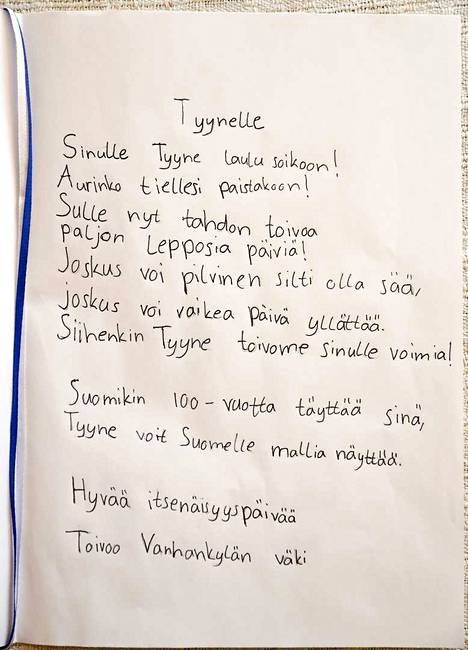 Tyynelle
Sinulle Tyyne laulu soikoon!
Aurinko tiellesi paistakoon!
Sulle nyt tahdon toivoa
paljon Lepposia päiviä!
Joskus voi pilvinen silti olla sää,
joskus voi vaikea päivä yllättää.
Siihenkin Tyyne toivome sinulle voimia!
Suomikin 100-vuotta täyttää sinä,
Tyyne voit Suomelle mallia näyttää.
Hyvää itsenäisyyspäivää
Toivoo Vanhankylän väki